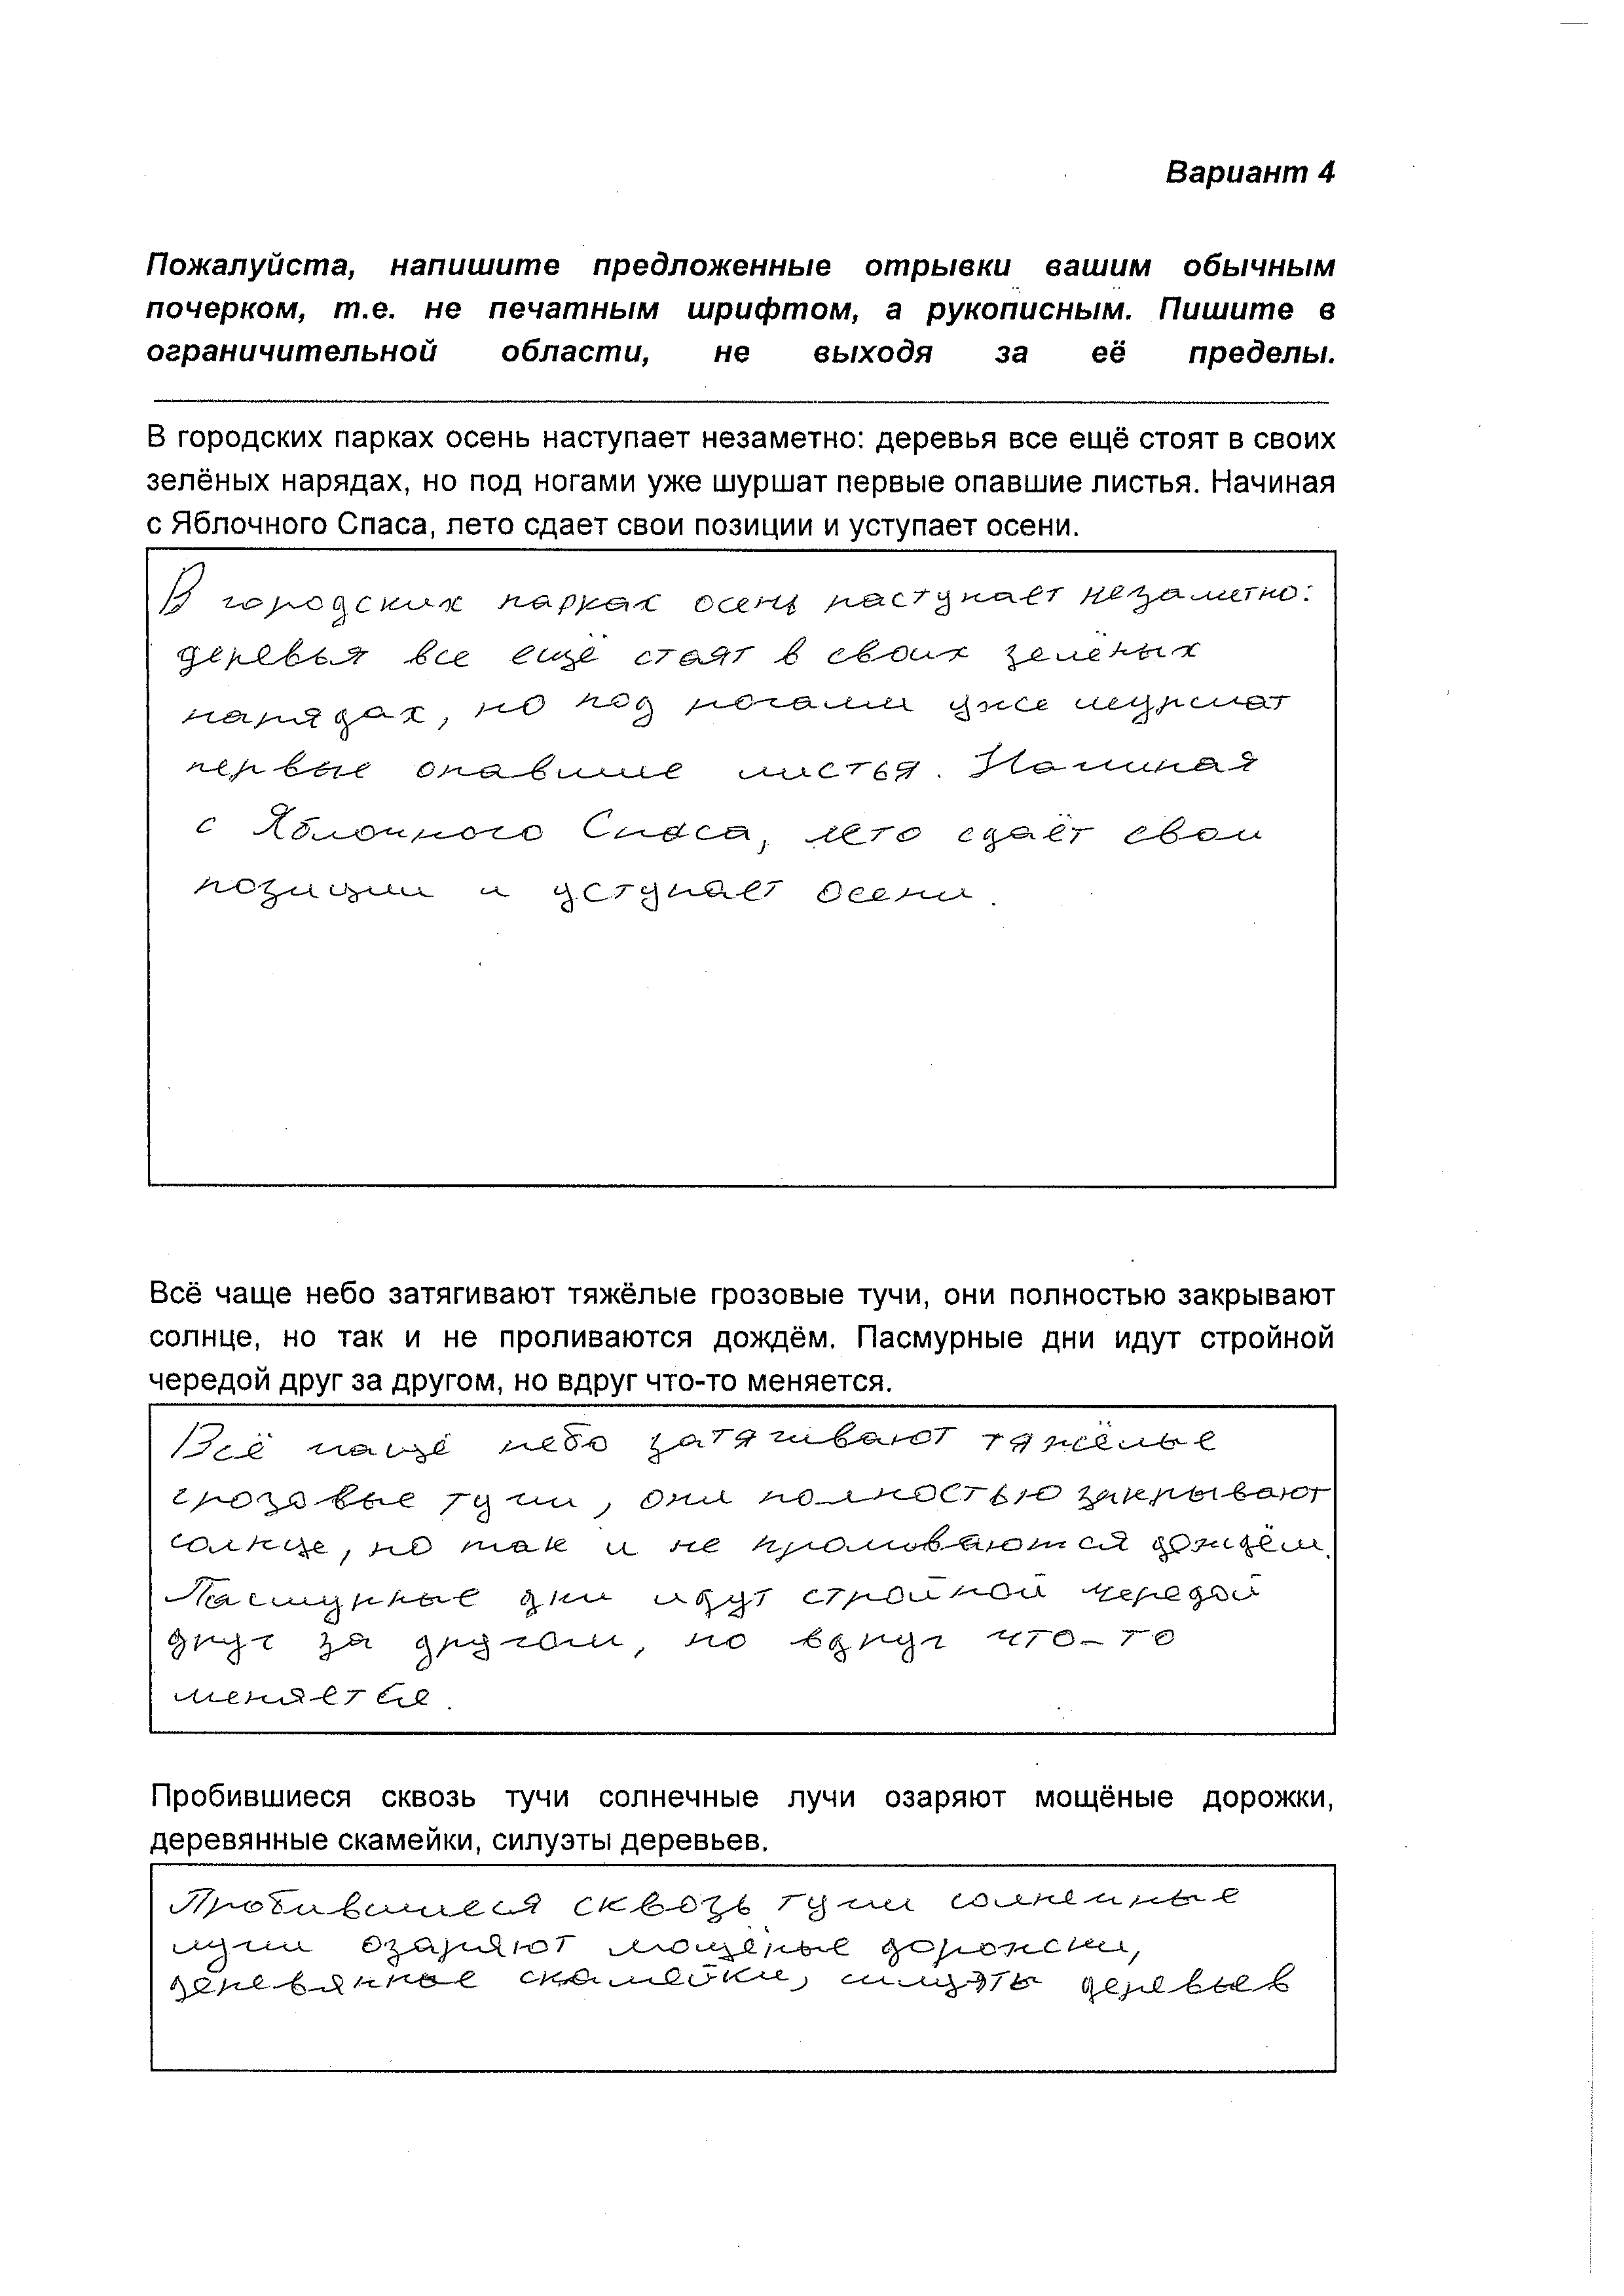 Вариант 4
Пожалуйста, напишите предложенные отрывки вашим обычным
почерком, т.е. не печатным шрифтом, а рукописным. Пишите в
ограничительной области, не выходя за её пределы.
В городских парках осень наступает незаметно: деревья все ещё стоят в своих
зелёных нарядах, но под ногами уже шуршат первые опавшие листья. Начиная
с Яблочного Спаса, лето сдает свои позиции и уступает осени.
В городских парках осень наступает незаметно:
деревья все ещё стоят в своих зелёных
нарядах, но под ногами уже шуршат
первые опавшие листья. Начиная
с Яблочного Спаса, лето сдаёт свои
позиции и уступает осени.
Всё чаще небо затягивают тяжёлые грозовые тучи, они полностью закрывают
солнце, но так и не проливаются дождём. Пасмурные дни идут стройной
чередой друг за другом, но вдруг что-то меняется.
Всё чаще небо затягивают тяжёлые
грозовые тучи, они полностью закрывают
солнце, но так и не проливаются дождём.
Пасмурные дни идут стройной чередой
друг за другом, но вдруг что-то
меняется.
Пробившиеся сквозь тучи солнечные лучи озаряют мощёные дорожки,
деревянные скамейки, силуэты деревьев.
Пробившиеся сквозь тучи солнечные
лучи озаряют мощёные дорожки,
деревянные скамейки, силуэты деревьев